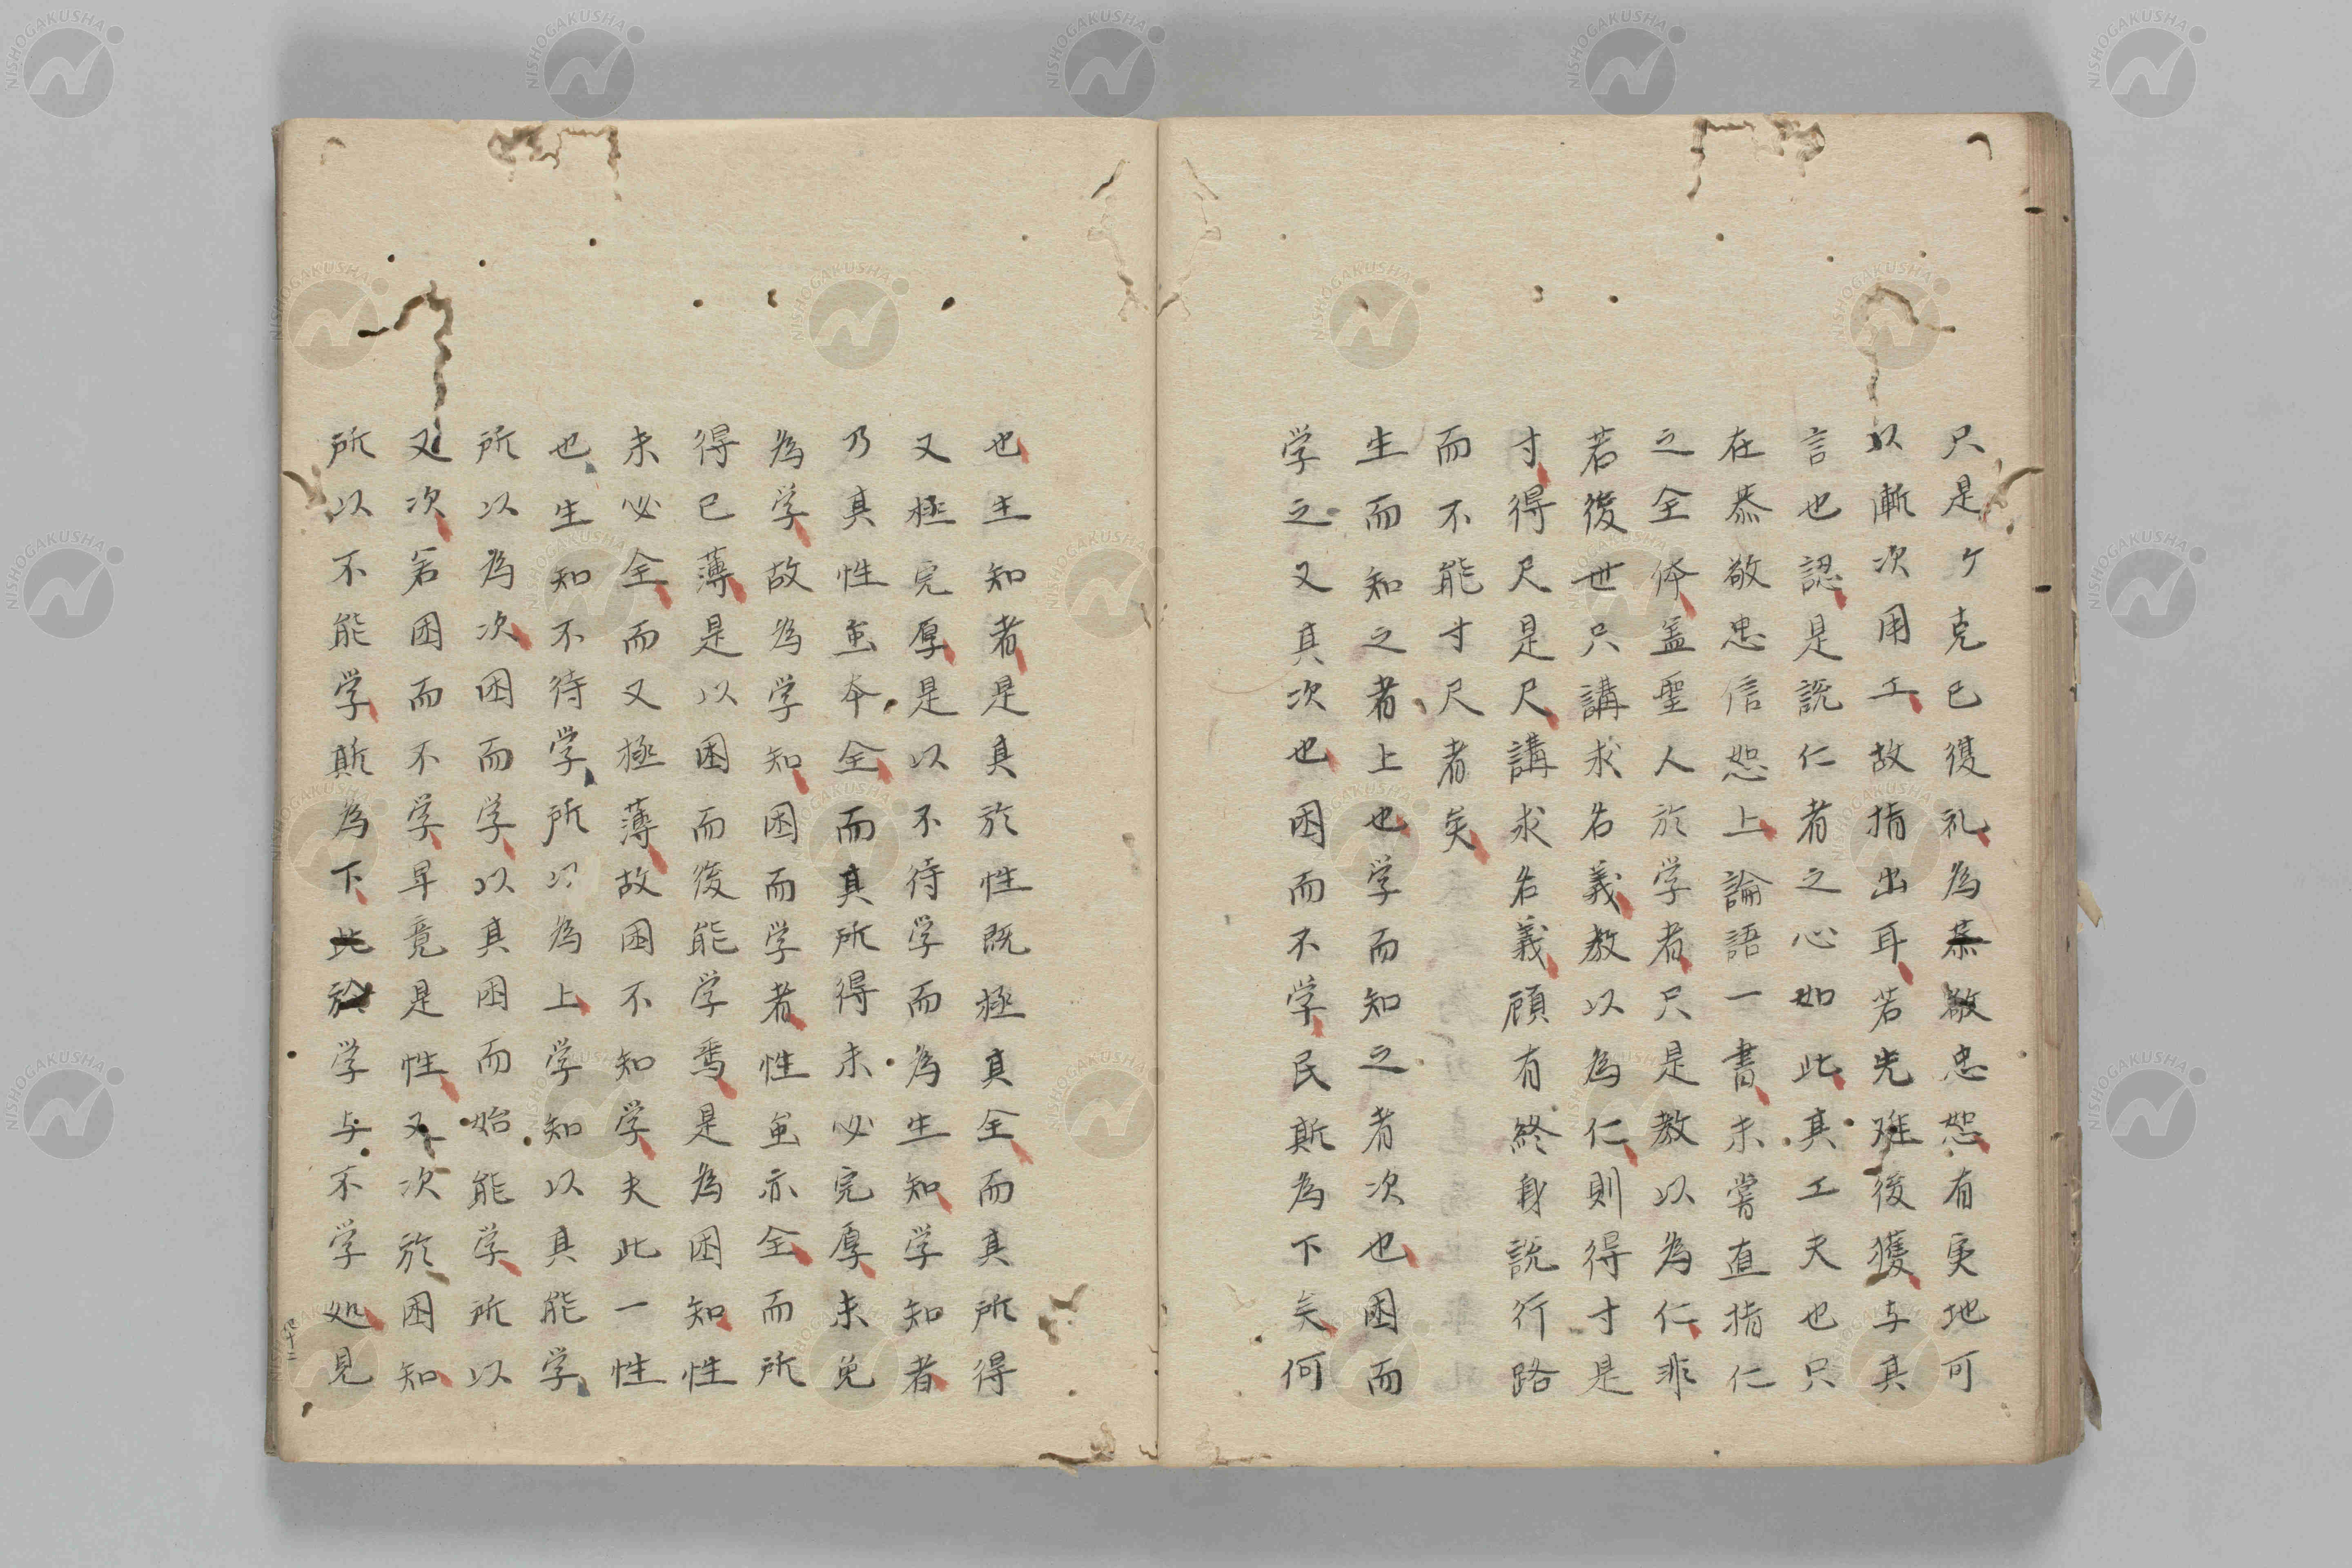 只是ケ克已復礼為恭敬忠恕有更地可
以漸次用工故指出耳若先难後獲与其
言也認是説仁者之心如此其工夫也只
在恭敬忠信恕上論語一書未嘗直指仁
之全体盖聖人於学者只是教以為仁非
若後世只講求名義教以為仁則得寸是
寸得尺是尺講求名義顧有終身説行路
而不能寸尺者矣
生而知之者上也学而知之者次也困而
学之又其次也困而不学民斯為下矣何
也生知者是其於性既極其全而其所得
又極完厚是以不待学而為生知学知者
乃其性虽本全而其所得未必完厚未免
為学故為学知困而学者性虽亦全而所
得已薄是以困而後能学焉是為困知性
未必全而又極薄故困不知学夫此一性
也生知不待学所以為上学知以其能学
所以為次困而学以其困而始能学所以
又次若困而不学早竟是性又次於困知
所以不能学斯為下此於学与不学処見
四十二
NISHOGAKUSHA